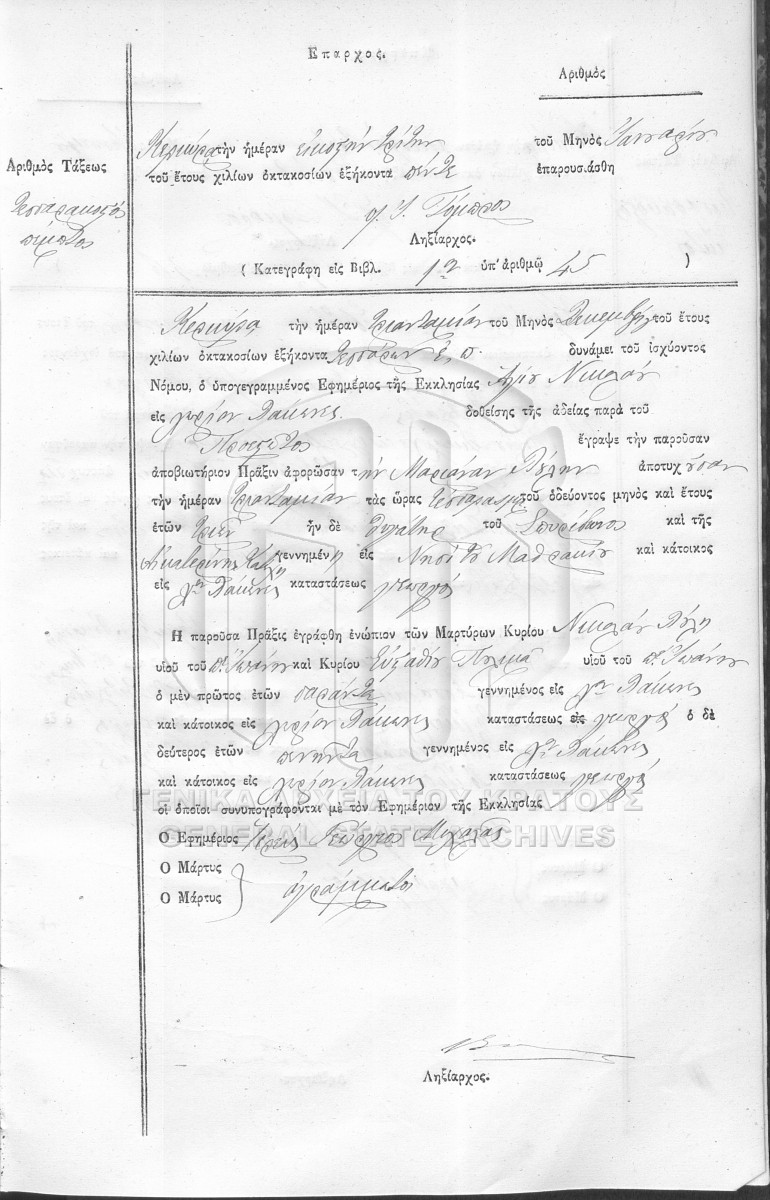 Ἔπαρχος.
Ἀριθμὸς
Ἀριθμὸς Τάξεως
τεσσαρακοστός
πέμπτος
Κέρκυρα τὴν ἡμέραν εἰκοστὴν τρίτην τοῦ Μηνὸς Ἰανουαρίου
τοῦ ἔτους χιλίων ὀκτακοσίων ἑξήκοντα πέντε ἐπαρουσιάσθη
Ληξίαρχος.
( Κατεγράφη εἰς Βιβλ. 1ον ὑπ' ἀριθμῷ 45 )
Κέρκυρα τὴν ἡμέραν τριανταμίαν τοῦ Μηνὸς Δεκεμβρίου τοῦ ἔτους
χιλίων ὀκτακοσίων ἑξήκοντα τεσσάρων Ε. Π. δυνάμει τοῦ ἰσχύοντος
Νόμου, ὁ ὑπογεγραμμένος Ἐφημέριος τῆς Ἐκκλησίας Ἁγίου Νικολάου
εἰς χωρίον Λάκωνες δοθείσης τῆς ἀδείας παρὰ τοῦ
ἔγραψε τὴν παροῦσαν
ἀποβιωτήριον Πρᾶξιν ἀφορῶσαν τὴν Μαριάναν ἀποτυχοῦσαν
τὴν ἡμέραν τριανταμίαν τὰς ὥρας τοῦ ὁδεύοντος μηνὸς καὶ ἔτους
ἐτῶν τριῶν ἦν δὲ θυγάτηρ τοῦ Σπυρίδωνος καὶ τῆς
Αἰκατερίνης γεννημένη εἰς Νησὶ τοῦ Μαθρακίου καὶ κάτοικος
εἰς χον Λάκωνες καταστάσεως γεωργός
Ἡ παροῦσα Πρᾶξις ἐγράφθη ἐνώπιον τῶν Μαρτύρων Κυρίου Νικολάου
υἱοῦ τοῦ π. Ἰωάννου καὶ Κυρίου Εὐσταθίου υἱοῦ τοῦ π. Ἰωάννου
ὁ μὲν πρῶτος ἐτῶν σαράντα γεννημένος εἰς χον Λάκωνες
καὶ κάτοικος εἰς χωρίον Λάκωνες καταστάσεως εἰς γεωργός ὁ δὲ
δεύτερος ἐτῶν πενήντα γεννημένος εἰς χον Λάκωνες
καὶ κάτοικος εἰς χωρίον Λάκωνες καταστάσεως γεωργός
οἱ ὁποῖοι συνυπογράφονται μὲ τὸν Ἐφημέριον τῆς Ἐκκλησίας
Ὁ Ἐφημέριος Ἱερεὺς Γεώργιος Μιχαλᾶς
Ὁ Μάρτυς
Ὁ Μάρτυς } ἀγράμματοι
Ληξίαρχος.
ΓΕΝΙΚΑ ΑΡΧΕΙΑ ΤΟΥ ΚΡΑΤΟΥΣ
GENERAL STATE ARCHIVES